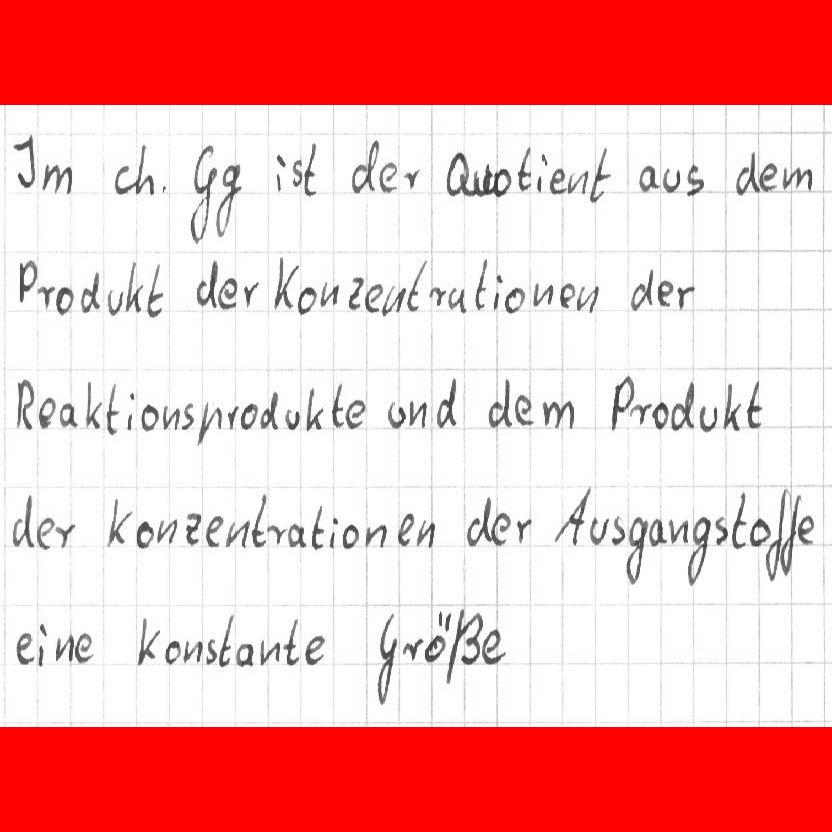 Im ch. Gg ist der Quotient aus dem
Produkt der Konzentrationen der
Reaktionsprodukte und dem Produkt
der Konzentrationen der Ausgangstoffe
eine konstante Größe